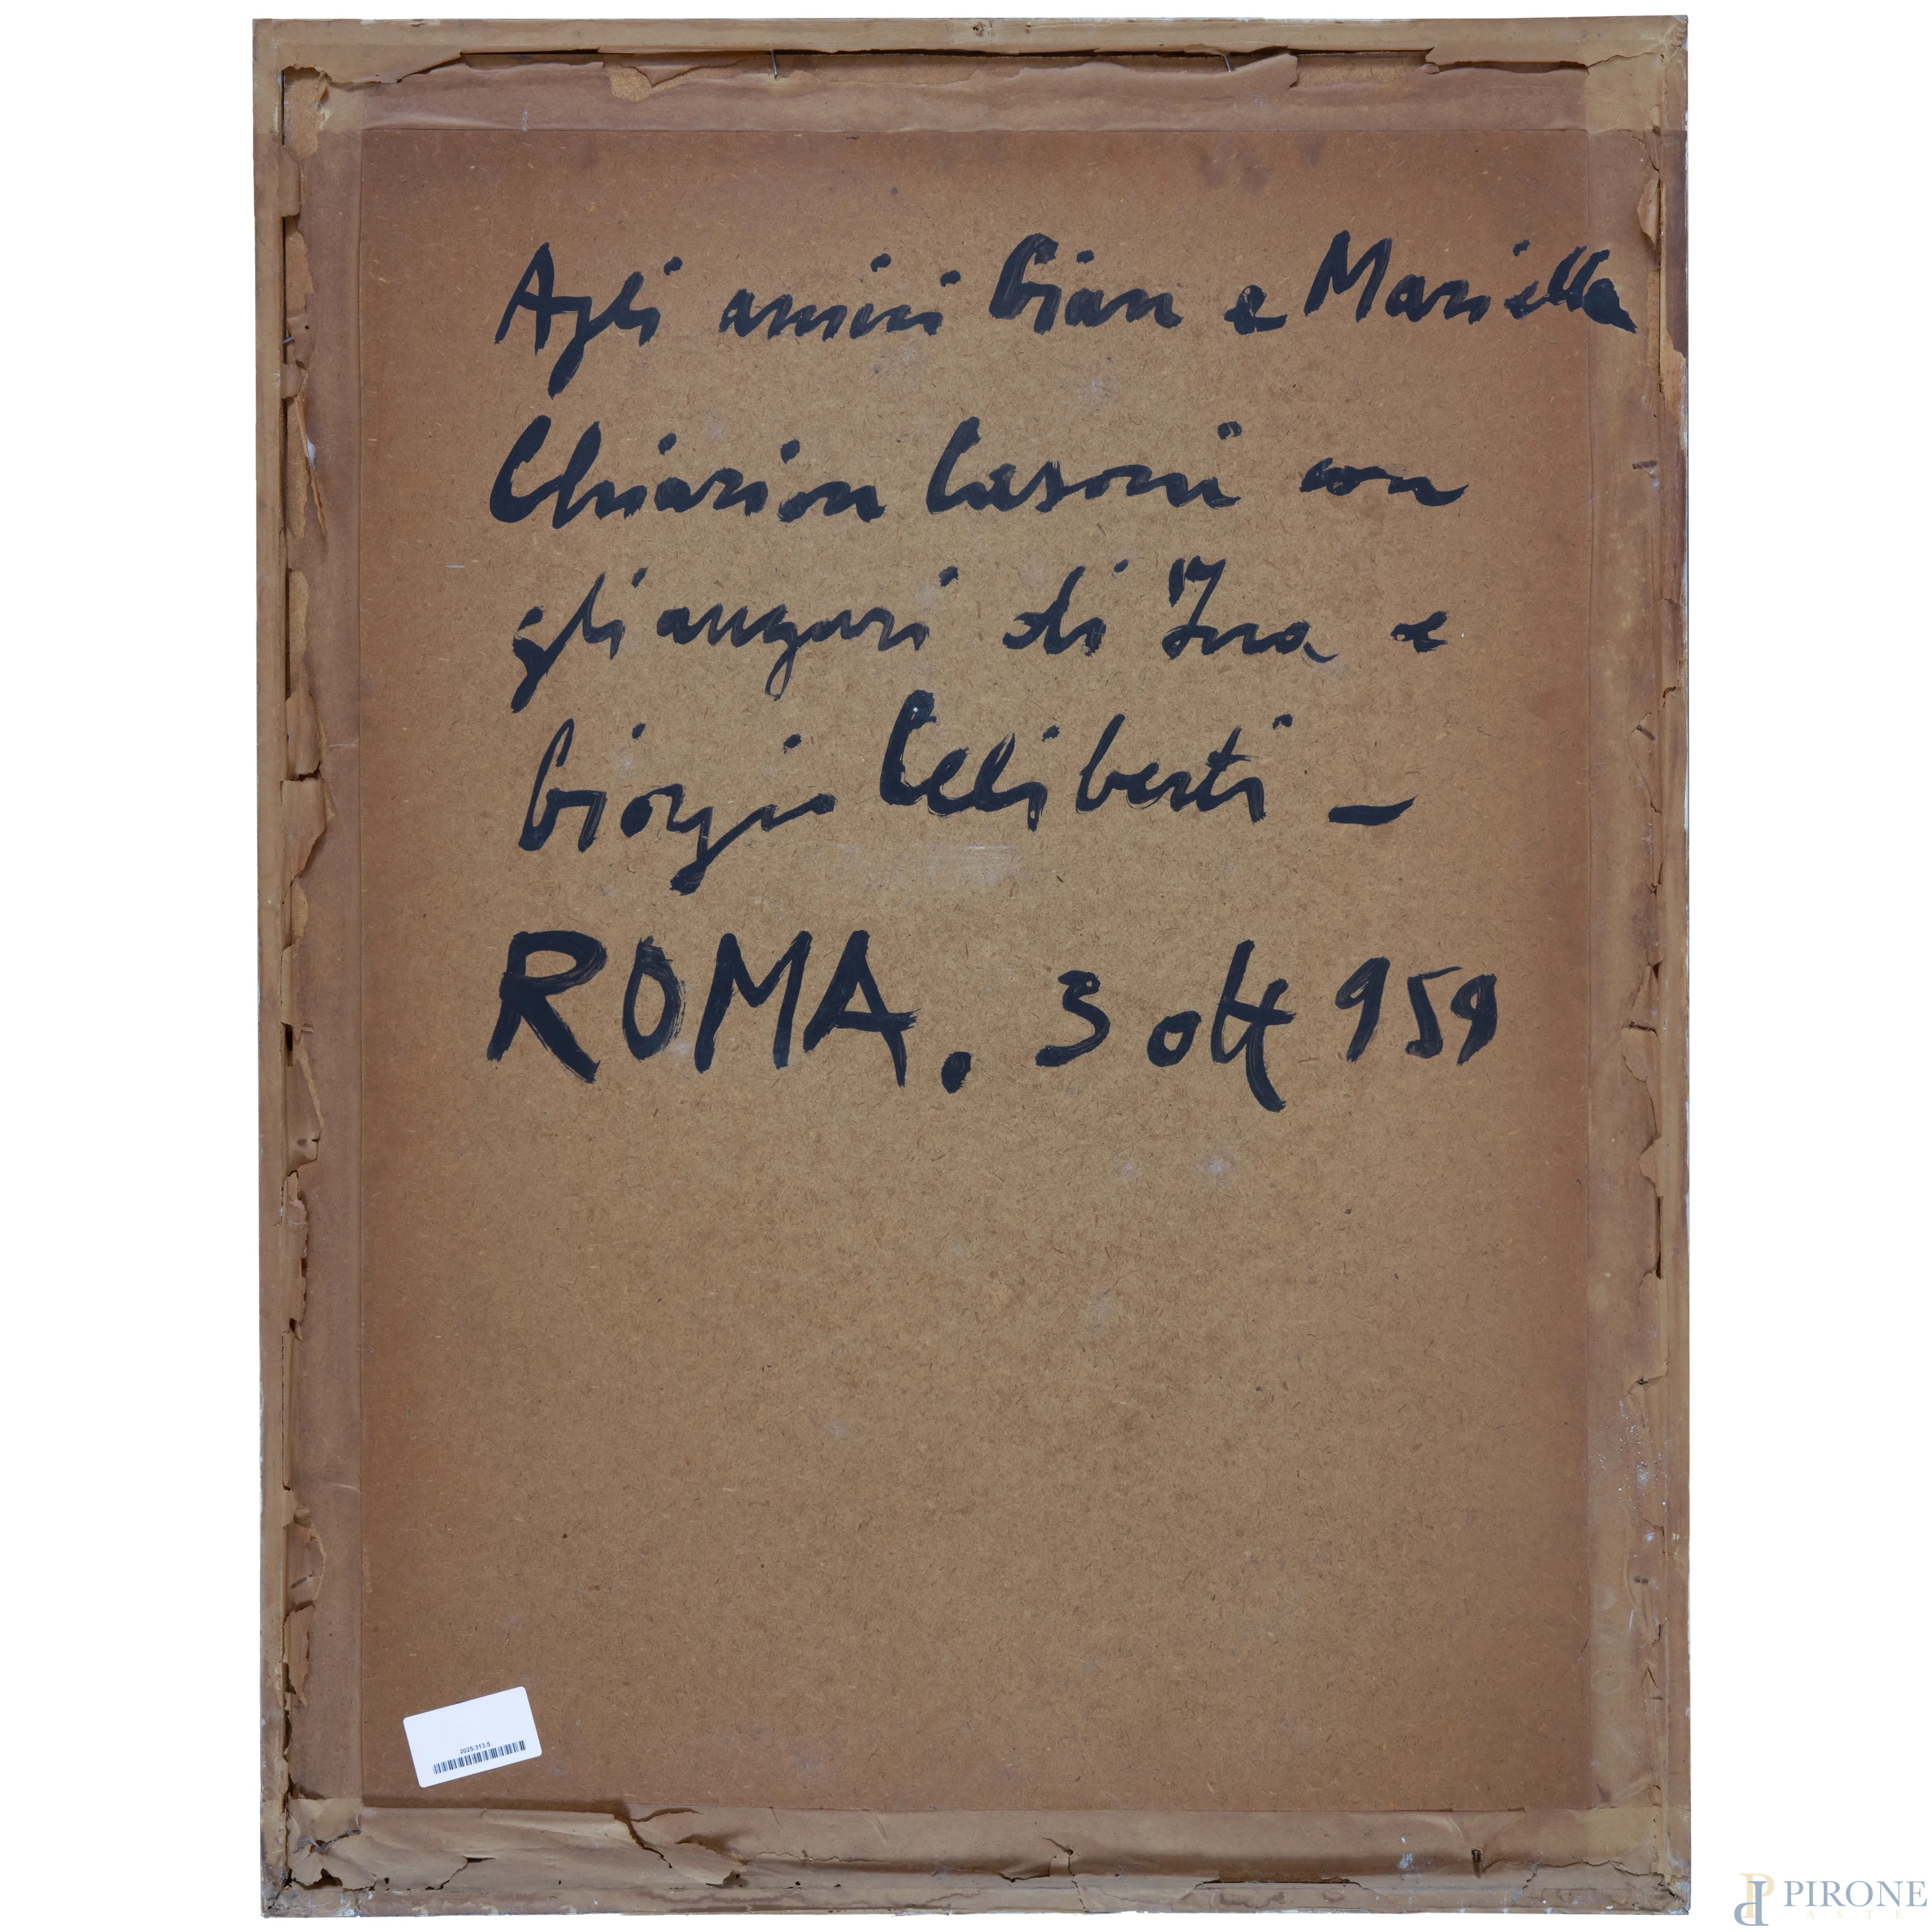 Agli amici Gian e Mariella
Chiarion Casoni con
gli auguri di Ina e
Giorgio Celiberti –
ROMA. 3 ott 959
2025.313.5
PIRONE
ASTE